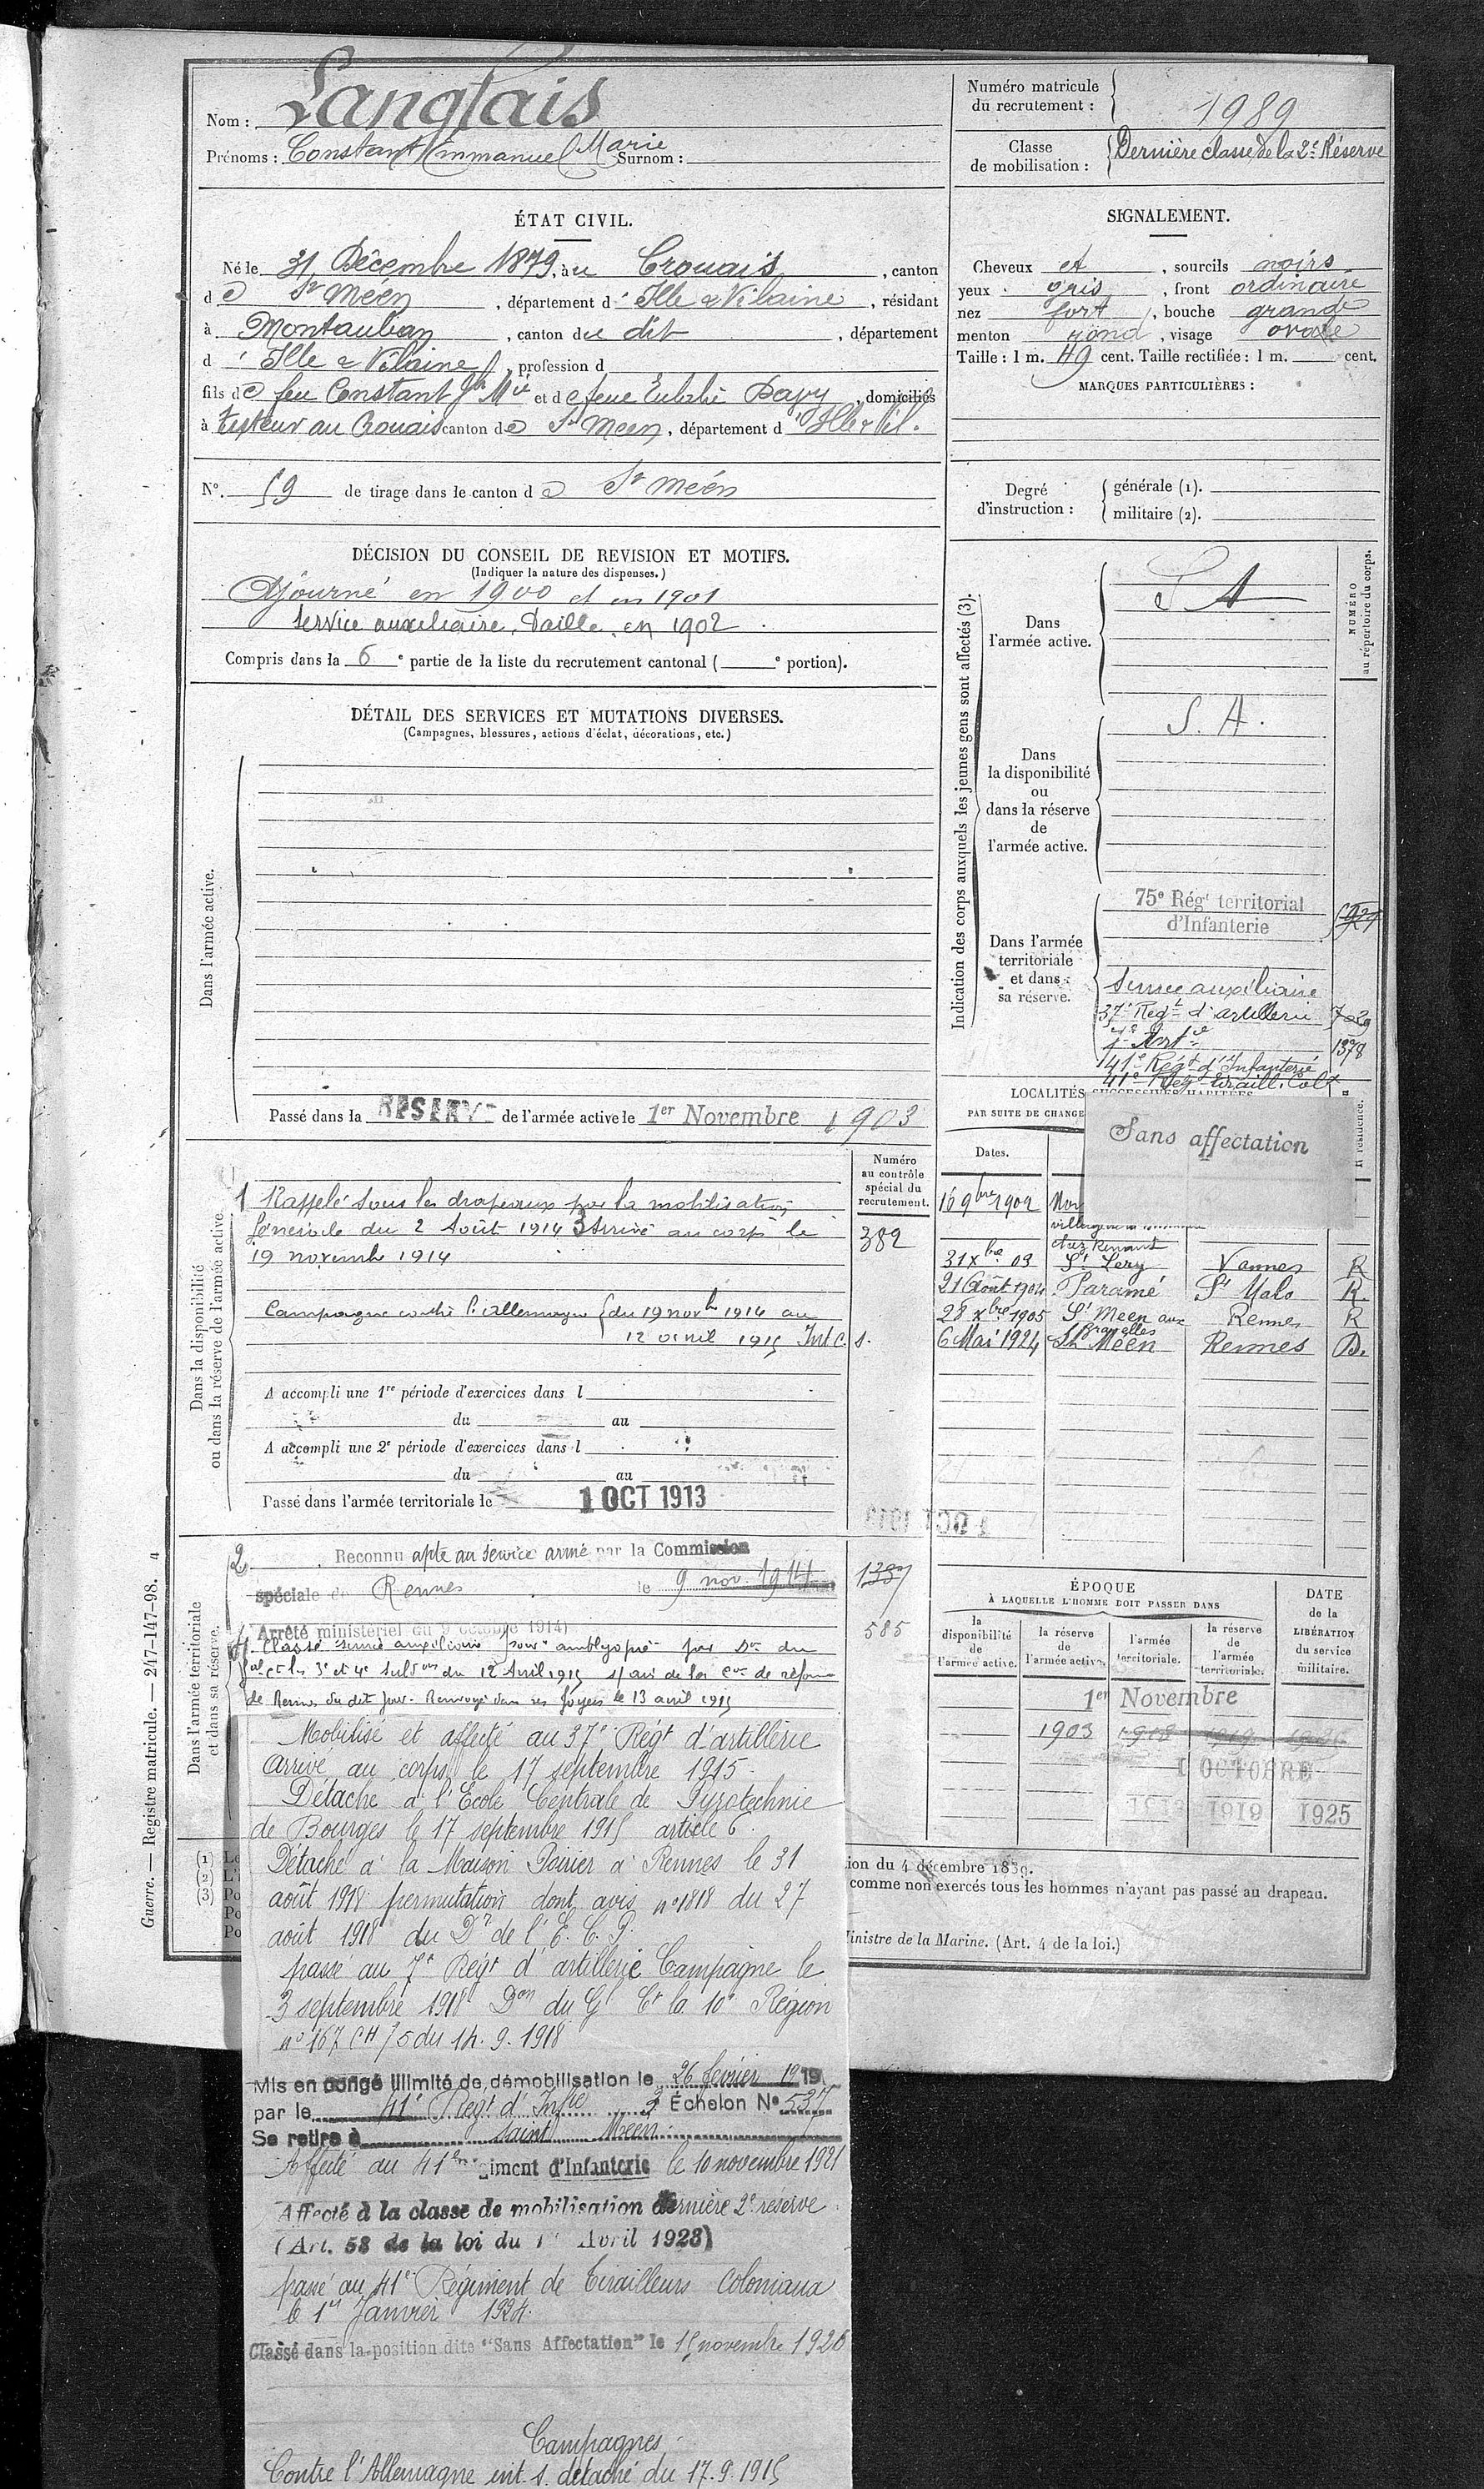 Nom : Langlais
Prénoms : Constant Emmanuel Marie Surnom :
Numéro matricule
du recrutement : 1989
Classe
de mobilisation : Dernière classe de la 2e Réserve
ÉTAT CIVIL.
Né le 31 Décembre 1879, à u Crouais, canton
de St Méen, département d' Ille & Vilaine, résidant
à Montauban, canton du dit, département
d' Ille & Vilaine, profession d
fils de feu Constant Jn Mie et de feue Eulalie Dapy, domiciliés
à tuteur au Crouais canton de St Meen, département d' Ille & Vil.
N° 59 de tirage dans le canton de St Méen
SIGNALEMENT.
Cheveux et, sourcils noirs
yeux gris, front ordinaire
nez fort, bouche grande
menton rond, visage ovale
Taille : 1 m. 49 cent. Taille rectifiée : 1 m. cent.
MARQUES PARTICULIÈRES :
Degré
d'instruction :
générale (1).
militaire (2).
DÉCISION DU CONSEIL DE REVISION ET MOTIFS.
(Indiquer la nature des dispenses.)
Ajourné en 1900 et en 1901
Service auxiliaire, Taille, en 1902.
Compris dans la 6e partie de la liste du recrutement cantonal ( e portion).
DÉTAIL DES SERVICES ET MUTATIONS DIVERSES.
(Campagnes, blessures, actions d'éclat, décorations, etc.)
Dans l'armée active.
Passé dans la RESERVE de l'armée active le 1er Novembre 1903
Indication des corps auxquels les jeunes gens sont affectés (3).
NUMÉRO
au répertoire du corps.
Dans
l'armée active.
S A
Dans
la disponibilité
ou
dans la réserve
de
l'armée active.
S. A.
Dans l'armée
territoriale
et dans
sa réserve.
75e Régt territorial
d'Infanterie
Service auxiliaire
37e Régt d'artillerie
7e Artie 1378
41e Régt d'Infanterie
41e Rég Tiraill. Colx
LOCALITÉS SUCCESSIVES HABITÉES
PAR SUITE DE CHANGE
Sans affectation
Dates.
R résidence.
16 9bre 1902
chez Renault
31 Xbre 03 St Lery Vannes R
21 Août 1904 Paramé St Malo R.
28 Xbre 1905 St Meen aux Rennes R
Granelles
6 Mai 1924 St Méen Rennes D.
Numéro
au contrôle
spécial du
recrutement.
382
Dans la disponibilité
ou dans la réserve de l'armée active.
1 Rappelé sous les drapeaux par la mobilisation
Générale du 2 Août 1914 3 Arrivé au corps le
19 novembre 1914
Campagne contre l'Allemagne { du 19 novbre 1914 au
12 avril 1915 Int C. S.
A accompli une 1re période d'exercices dans l
du au
A accompli une 2e période d'exercices dans l
du au
Passé dans l'armée territoriale le 1 OCT 1913
Dans l'armée territoriale
et dans sa réserve.
2 Reconnu apte au service armé par la Commission
spéciale de Rennes le 9 nov. 1914
Arrêté ministériel du 9 octobre 1914)
1387
585
4. Classé service auxiliaire pour amblyopie par Don du
Gal Ct les 3e et 4e Subdons du 12 Avril 1915 s/ avis de la Con de réforme
de Rennes du dit jour. Renvoyé dans ses foyers le 13 avril 1915
Mobilisé et affecté au 37e Régt d'artillerie
Arrivé au corps le 17 septembre 1915.
Détaché à l'Ecole Centrale de Pyrotechnie
de Bourges le 17 septembre 1915 article 6.
Détaché à la Maison Poirier à Rennes le 31
août 1918 permutation dont avis n° 1818 du 27
août 1918 du Dr de l'E. C. P.
passé au 7e Régt d'artillerie Campagne le
3 septembre 1918 Don du Gl Ct la 10e Région
n° 167 CH/5 du 14. 9. 1918
Mis en congé illimité de démobilisation le 26 février 1919
par le 41e Régt d'Infie 3e Échelon N° 537
Se retire à Saint Meen
Affecté au 41e régiment d'Infanterie le 10 novembre 1921
Affecté à la classe de mobilisation dernière 2e réserve
(Art. 58 de la loi du 1er Avril 1923)
passé au 41e Régiment de Tirailleurs Coloniaux
le 1er Janvier 1924.
Classé dans la position dite "Sans Affectation" le 15 novembre 1926
Campagnes
Contre l'Allemagne int. s. détaché du 17.9.1915
ÉPOQUE
À LAQUELLE L'HOMME DOIT PASSER DANS
la
disponibilité
de
l'armée active.
la réserve
de
l'armée active.
l'armée
territoriale.
la réserve
de
l'armée
territoriale.
DATE
de la
LIBÉRATION
du service
militaire.
1er Novembre
1903 1918 1919 1926
1 OCTOBRE
1913 1919 1925
(1) Le
(2) L'i
(3) Po
Po
Po
tion du 4 décembre 1889.
comme non exercés tous les hommes n'ayant pas passé au drapeau.
inistre de la Marine. (Art. 4 de la loi.)
Guerre. — Registre matricule. — 247-147-98. 4